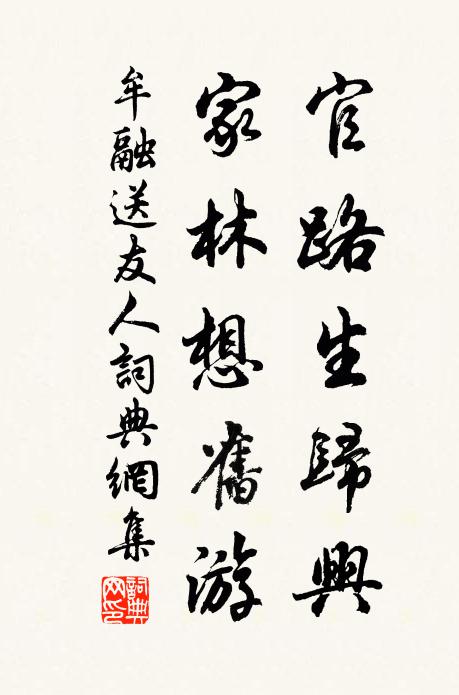 官路生歸興
家林想舊游
牟融送友人詞典網集
詞典网印